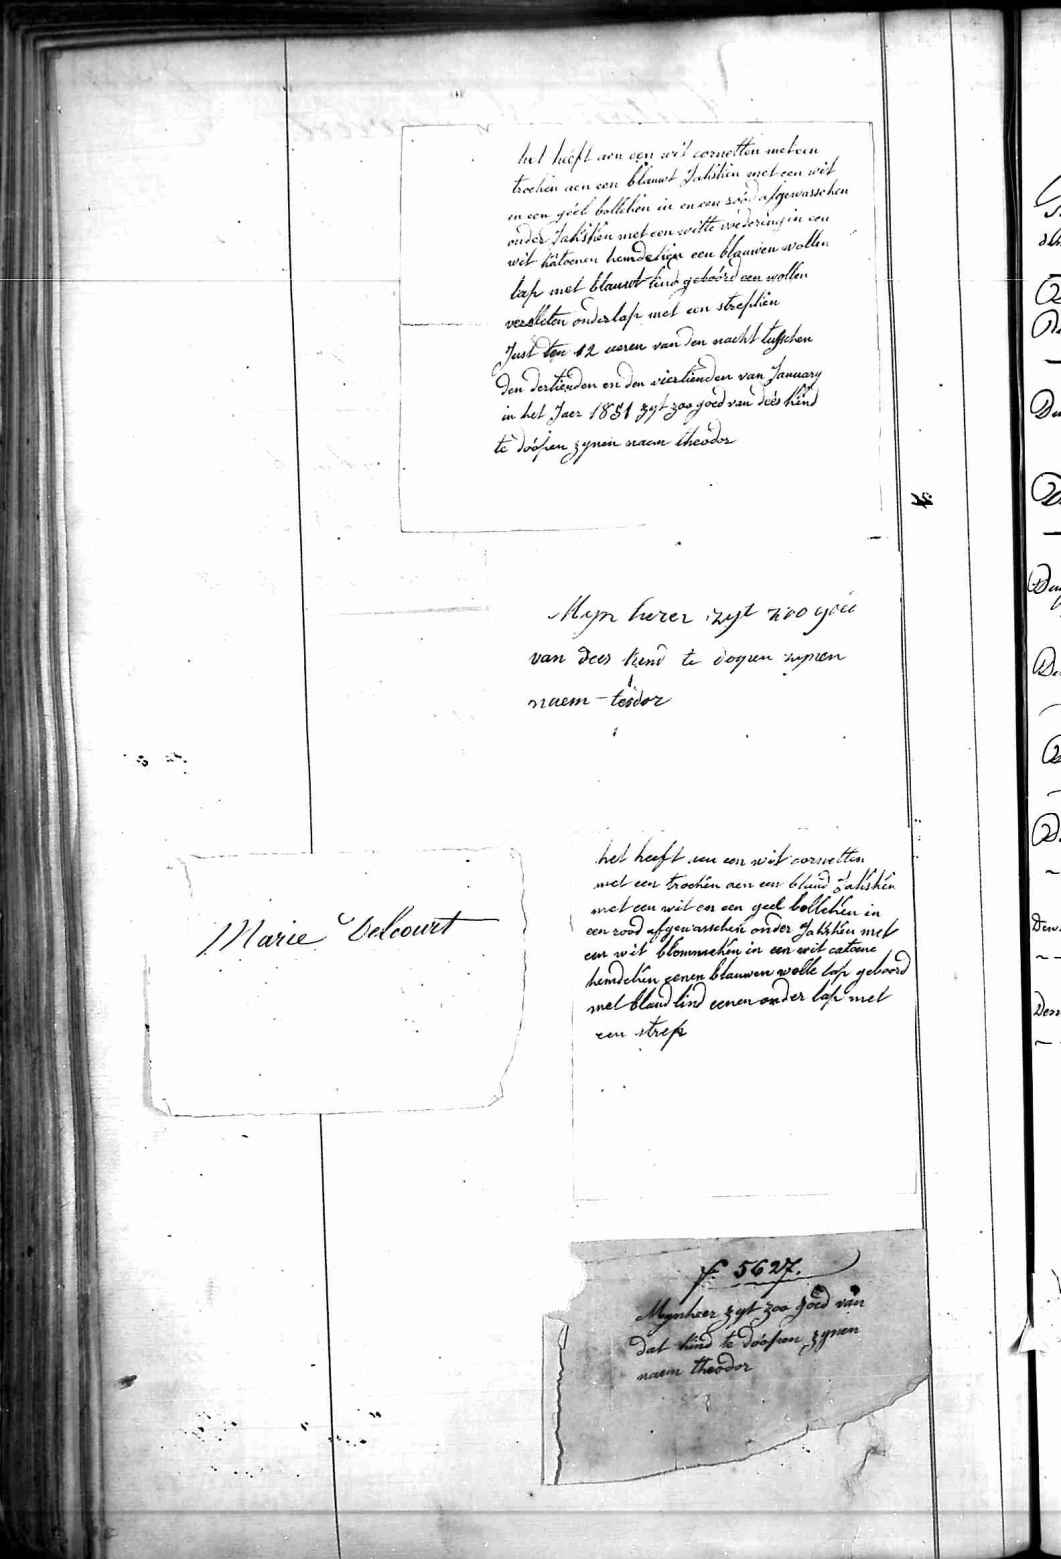 het heeft aen een wit cornetten met een
trochen aen een blauwt Jakshen met een wit
en een geel bolleken in en een rood afgewasschen
onder Jakshen met een witte voedering in een
wit katoenen hemdeken een blauwen wollen
lap met blauwt lind geboord een wollen
versleten onderlap met een strepken
Just ten 12 ueren van den nacht tusschen
den dertienden en den viertienden van January
in het Jaer 1851 zyt zoo goed van dees kind
te doopen zynen naem theodor
4
Myn heer zyt zoo goed
van dees kend te dopen zynen
naem - teodor
het heeft aen een wit cornetten
met een trochen aen een blaud Jakshen
met een wit en een geel bolleken in
een rood afgewasschen onder Jakshen met
een wit blommeken in een wit catoene
hemdeken eenen blauwen wolle lap geboord
met blaud lind eenen onder lap met
een strep
Marie Delcourt
N° 5627.
Mynheer zyt zoo goed van
dat kind te doopen zynen
naem theodor